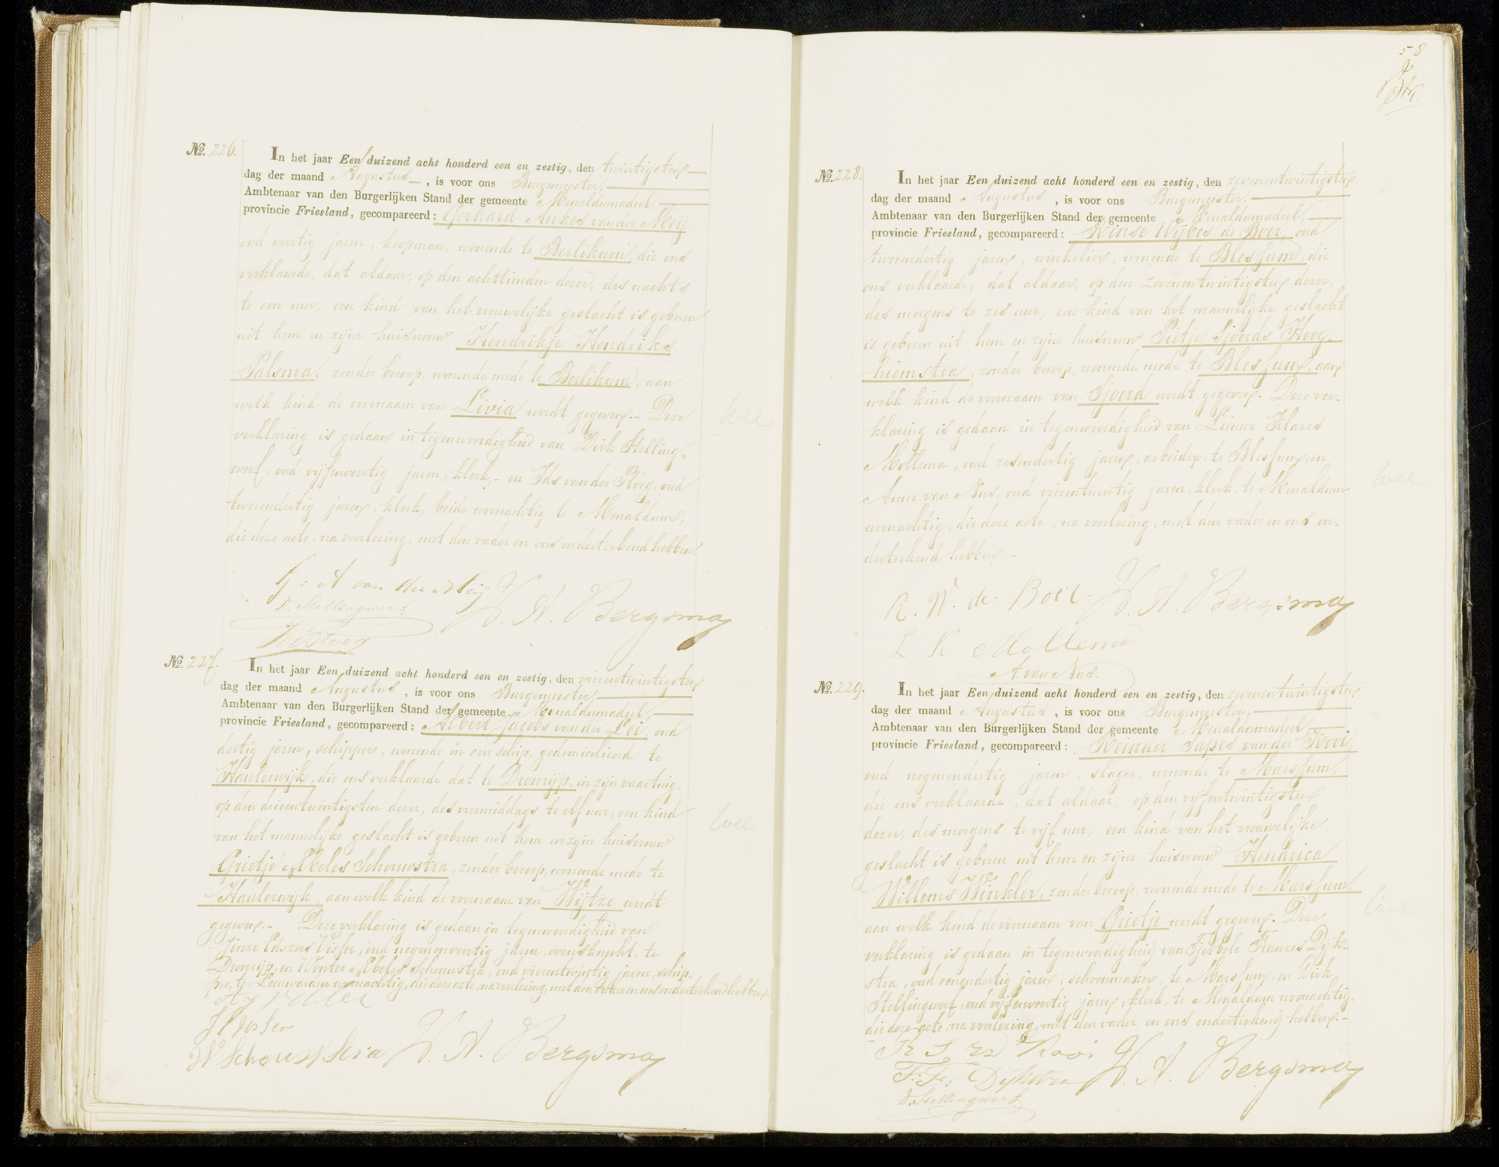 No. 226.
In het jaar Een duizend acht honderd een en zestig, den twintigsten
dag der maand Augustus, is voor ons Burgemeester,
Ambtenaar van den Burgerlijken Stand der gemeente Menaldumadeel,
provincie Friesland, gecompareerd: Gerhard Ankes van der Meij
oud veertig jaren, koopman, wonende te Berlikum, die ons
verklaarde, dat aldaar, op den achttienden dezer, des nachts
te een uur, een kind van het vrouwelijke geslacht is geboren
uit hem en zijne huisvrouw Hendrikje Hendriks
Palsma, zonder beroep, wonende mede te Berlikum, aan
welk kind de voornaam van Livia wordt gegeven. Deze
verklaring is gedaan in tegenwoordigheid van Dirk Stelling-
werf, oud vijfenveertig jaren, klerk, en Ids van der Ploeg, oud
tweeendertig jaren, klerk, beide woonachtig te Menaldum,
die deze acte, na voorlezing, met den vader en ons onderteekend hebben
G. A van der Meij W. A. Bergsma
D. Stellingwerf
No. 227.
In het jaar Een duizend acht honderd een en zestig, den zevenentwintigsten
dag der maand Augustus, is voor ons Burgemeester,
Ambtenaar van den Burgerlijken Stand der gemeente Menaldumadeel,
provincie Friesland, gecompareerd: Albert Jacobs van der Lei, oud
dertig jaren, schipper, wonende in een schip, gedomicilieerd te
Haulerwijk, die ons verklaarde dat te Dronrijp, in zijn vaartuig
op den drieentwintigsten dezer, des voormiddags te elf uur, een kind
van het mannelijke geslacht is geboren uit hem en zijne huisvrouw
Grietje Ebeles Schouwstra, zonder beroep, wonende mede te
Haulerwijk, aan welk kind de voornaam van Wijtze wordt
gegeven. Deze verklaring is gedaan in tegenwoordigheid van
oud negenenveertig jaren, te
Dronrijp, en Wouter Ebeles Schouwstra, oud vierentwintig jaren, schip-
per, te Leeuwarden woonachtig, die deze acte, na voorlezing, met den vader en ons onderteekend hebben
W Schouwstra W. A. Bergsma
58
No. 228.
In het jaar Een duizend acht honderd een en zestig, den zevenentwintigsten
dag der maand Augustus, is voor ons Burgemeester,
Ambtenaar van den Burgerlijken Stand der gemeente Menaldumadeel,
provincie Friesland, gecompareerd: Rinse Wijbes de Boer, oud
tweeendertig jaren, winkelier, wonende te Blessum, die
ons verklaarde, dat aldaar, op den zevenentwintigsten dezer,
des morgens te zes uur, een kind van het mannelijke geslacht
is geboren uit hem en zijne huisvrouw Pietje Sjoerds Hoog-
hiemstra, zonder beroep, wonende mede te Blessum, aan
welk kind de voornaam van Sjoerd wordt gegeven. Deze ver-
klaring is gedaan in tegenwoordigheid van Lieuwe Klazes
Mollema, oud zesendertig jaren, arbeider, te Blessum, en
Anne van Nus, oud vierentwintig jaren, klerk, te Menaldum
woonachtig, die deze acte, na voorlezing, met den vader en ons on-
derteekend hebben.
R. W. de Boer W. A. Bergsma
L K Mollema
A van Nus.
No. 229.
In het jaar Een duizend acht honderd een en zestig, den zevenentwintigsten
dag der maand Augustus, is voor ons Burgemeester,
Ambtenaar van den Burgerlijken Stand der gemeente Menaldumadeel,
provincie Friesland, gecompareerd: van der Kooi,
oud negenendertig jaren, slager, wonende te Marssum,
die ons verklaarde, dat aldaar, op den vijfentwintigsten
dezer, des morgens te vijf uur, een kind van het vrouwelijke
geslacht is geboren uit hem en zijne huisvrouw Hendrica
Willems Winkler, zonder beroep, wonende mede te Marssum
aan welk kind de voornaam van Grietje wordt gegeven. Deze
verklaring is gedaan in tegenwoordigheid van Fokke Franses Dijk-
stra, oud jaren, schoenmaker, te Marssum, en Dirk
Stellingwerf, oud vijfenveertig jaren, klerk, te Menaldum woonachtig,
die deze acte, na voorlezing, met den vader en ons onderteekend hebben.
Kooi W. A. Bergsma
F. Fr. Dijkstra
D. Stellingwerf